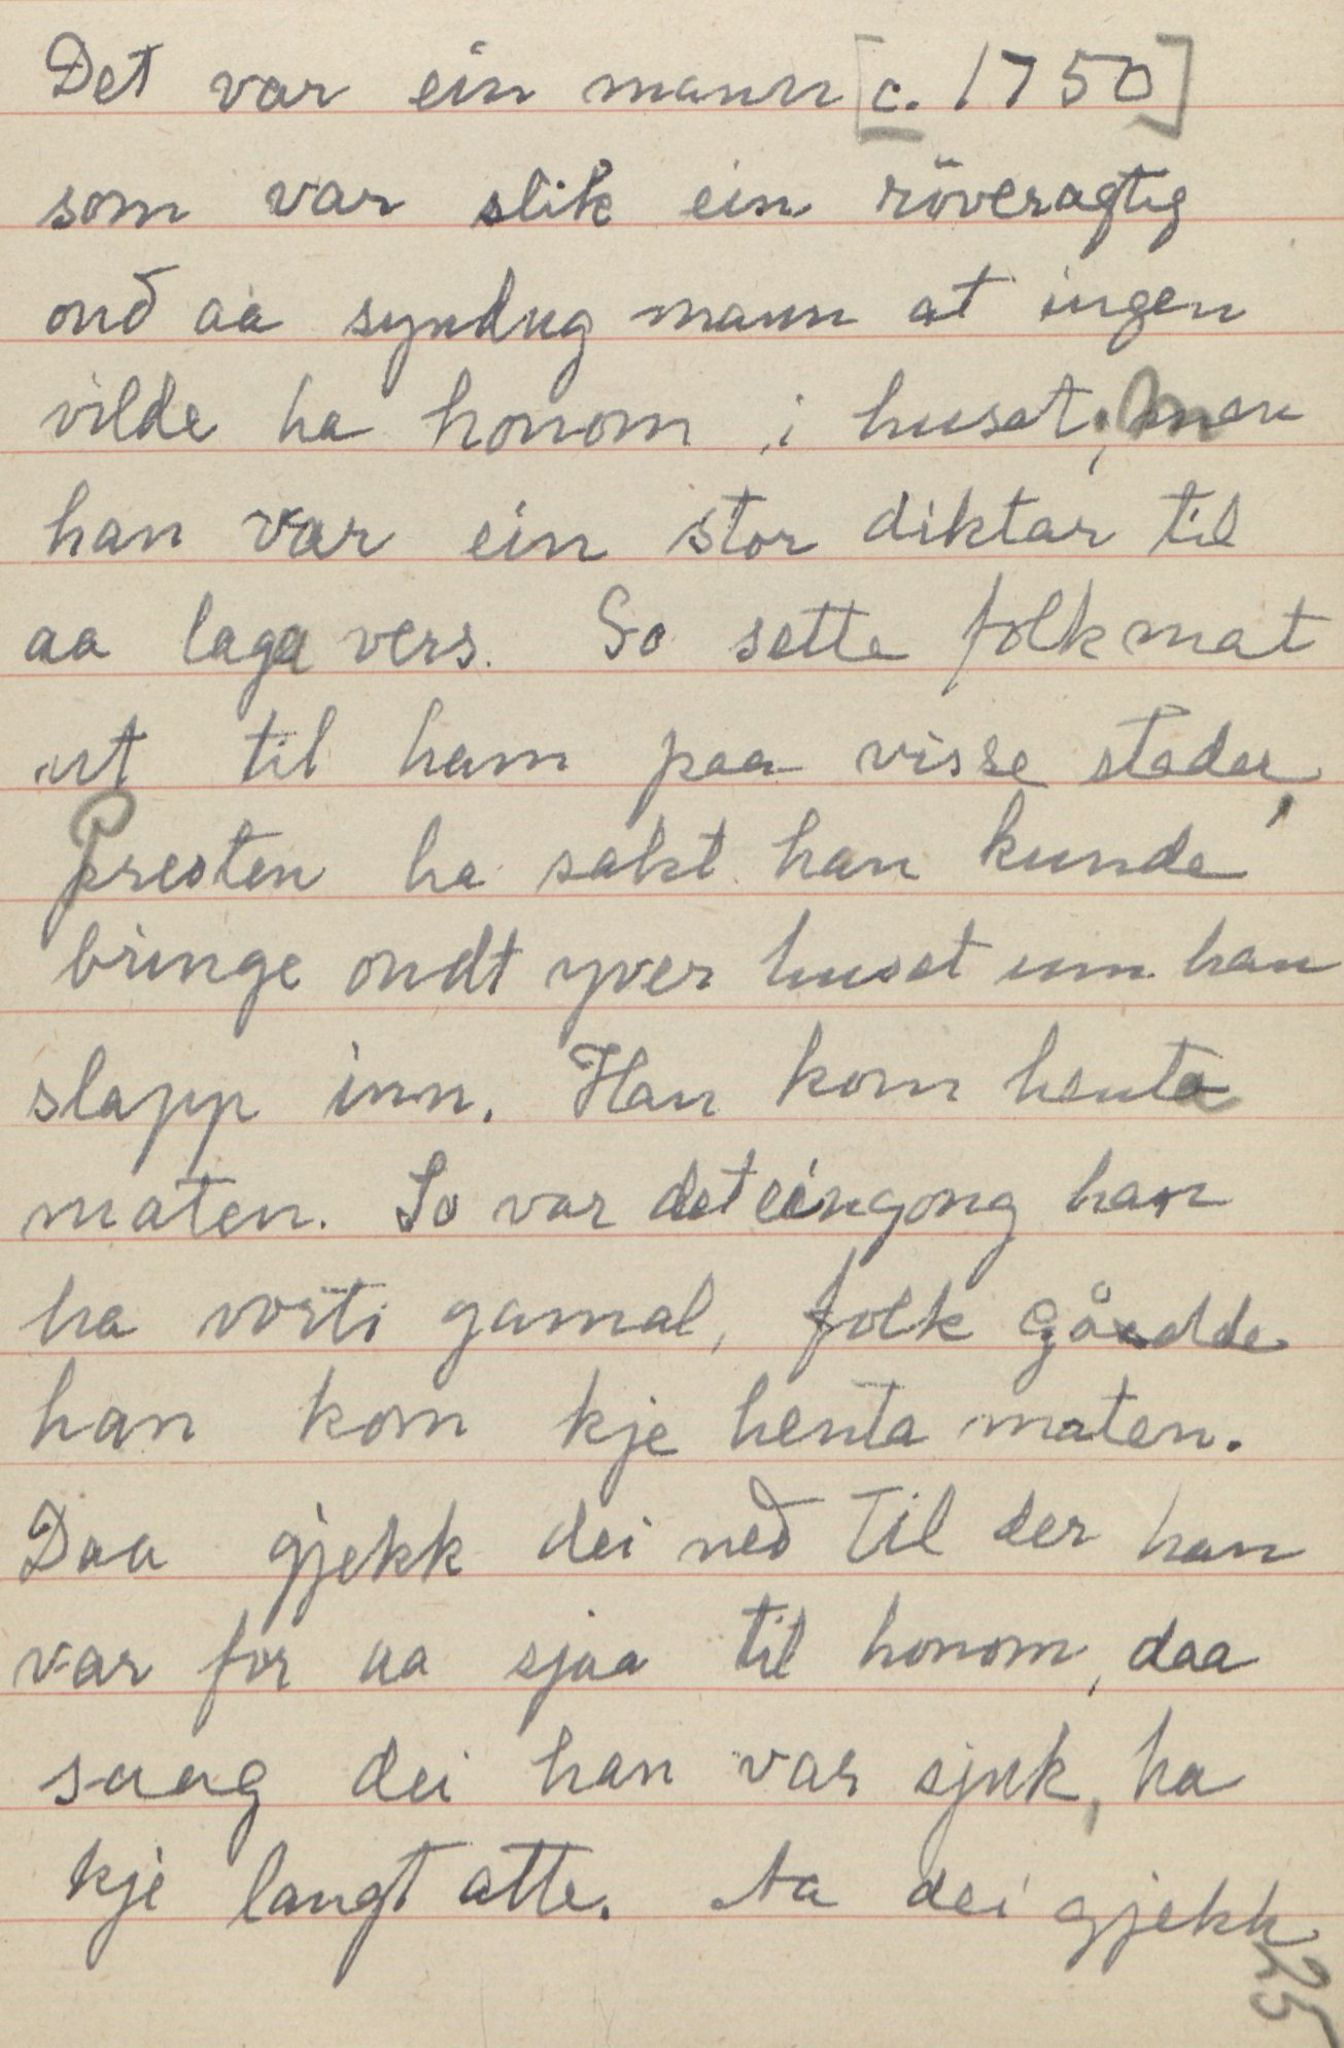 Det var ein mann [c. 1750]
som var slik ein röveragtig
ond aa syndug mann at ingen
vilde ha honom i huset; men
han var ein stor diktar til
aa laga vers. So sette folk mat
ut til ham paa visse stader,
Presten ha sakt han kunde
bringe ondt yver huset um han
slapp inn. Han kom henta
maten. So var det eingong han
ha vorti gamal, folk
han kom kje henta maten.
Daa gjekk dei ned til der han
var for aa sjaa til honom, daa
saag dei han var sjuk, ha
kje langt atte. Aa dei gjekk
25